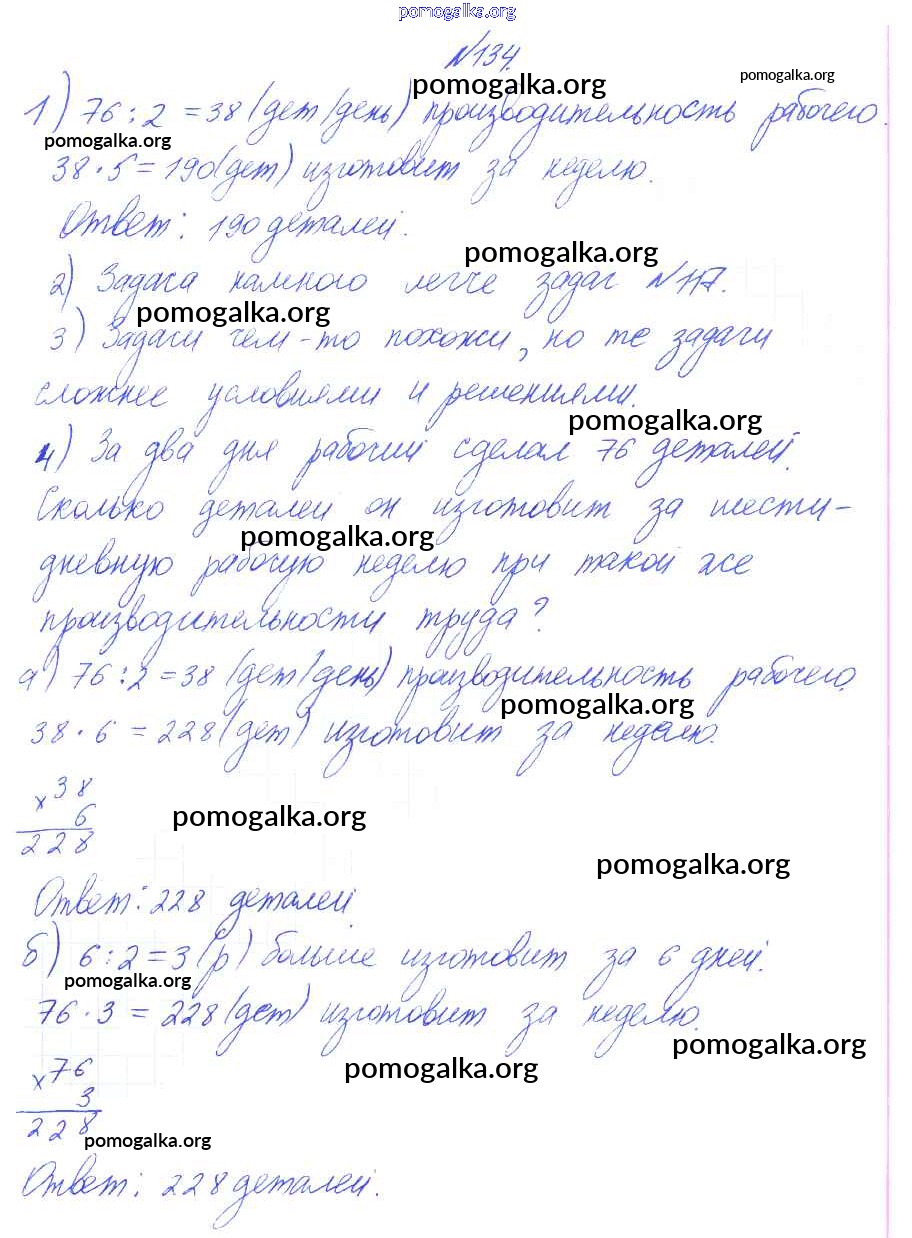 pomogalka.org
№134.
pomogalka.org
pomogalka.org
1) 76:2=38 (дет/день) производительность рабочего.
pomogalka.org
38·5=190(дет) изготовит за неделю.
Ответ: 190 деталей.
pomogalka.org
2) Задача намного легче задач №117.
pomogalka.org
3) Задачи чем-то похожи, но те задачи
сложнее условиями и решениями.
pomogalka.org
4) За два дня рабочий сделал 76 деталей.
Сколько деталей он изготовит за шести-
pomogalka.org
дневную рабочую неделю при такой же
производительности труда?
а) 76:2=38 (дет/день) производительность рабочего.
pomogalka.org
38·6=228(дет) изготовит за неделю.
x38
6
228
pomogalka.org
pomogalka.org
Ответ: 228 деталей.
б) 6:2=3(р) больше изготовит за 6 дней.
pomogalka.org
76·3=228(дет) изготовит за неделю.
pomogalka.org
pomogalka.org
x76
3
228
pomogalka.org
Ответ: 228 деталей.